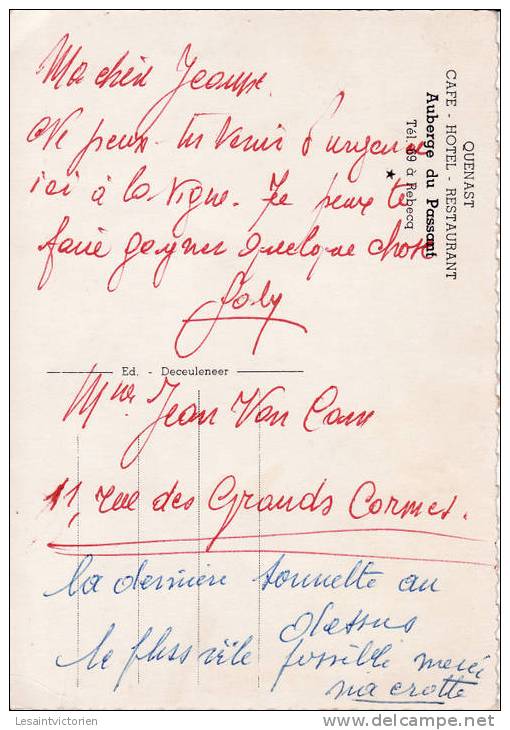 QUENAST
CAFE - HOTEL - RESTAURANT
Auberge du Passant
Tél. 69 à Rebecq
★
Ma chère Jeanne.
Ne peux-tu venir d'urgence
ici à la Vigne. Je peux te
faire gagner quelque chose
Ed. - Deceuleneer
Mme Jean Van Cam
11, rue des Grands Cormes.
la dernière sonnette au
dessus
le pluss vite possible merci
ma crotte
Lesaintvictorien
www.delcampe.net